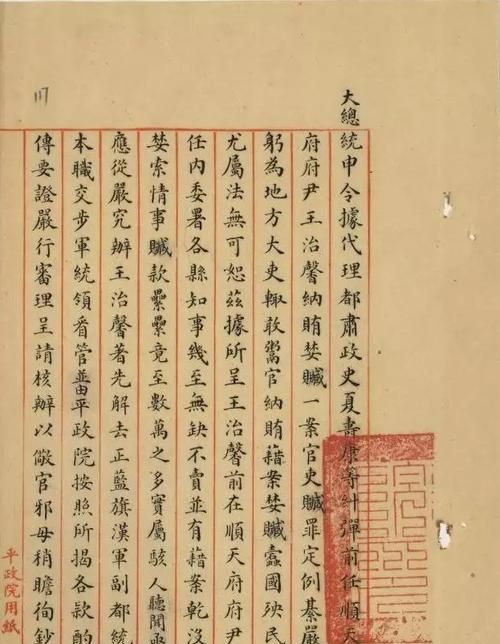 大總統申令據代理都肅政史夏壽康等糾彈前任順天
府府尹王治馨納賄婪贓一案官吏贓罪定例綦嚴
躬為地方大吏輒敢鬻官納賄藉案婪贓蠹國殃民
尤屬法無可恕茲據所呈王治馨前在順天府府尹
任內委署各縣知事幾至無缺不賣並有藉案乾沒
婪索情事贓款纍纍竟至數萬之多實屬駭人聽聞亟
應從嚴究辦王治馨著先解去正藍旗漢軍副都統
本職交步軍統領看管並由平政院按照所揭各款酌
傳要證嚴行審理呈請核辦以儆官邪毋稍瞻徇鈔
平政院用紙
117